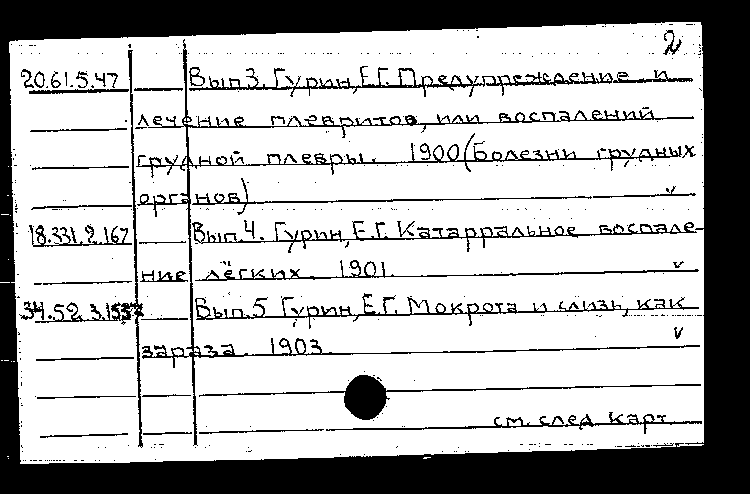 2
20.61.5.47 Вып.3. Гурин, Е.Г. Предупреждение и
лечение плевритов, или воспалений
грудной плевры. 1900 (Болезни грудных
органов) v
18.331.2.167 Вып.4. Гурин, Е.Г. Катарральное воспале-
ние лёгких. 1901. v
34.52.3.1537 Вып.5 Гурин, Е.Г. Мокрота и слизь, как
зараза. 1903. v
см. след. карт.